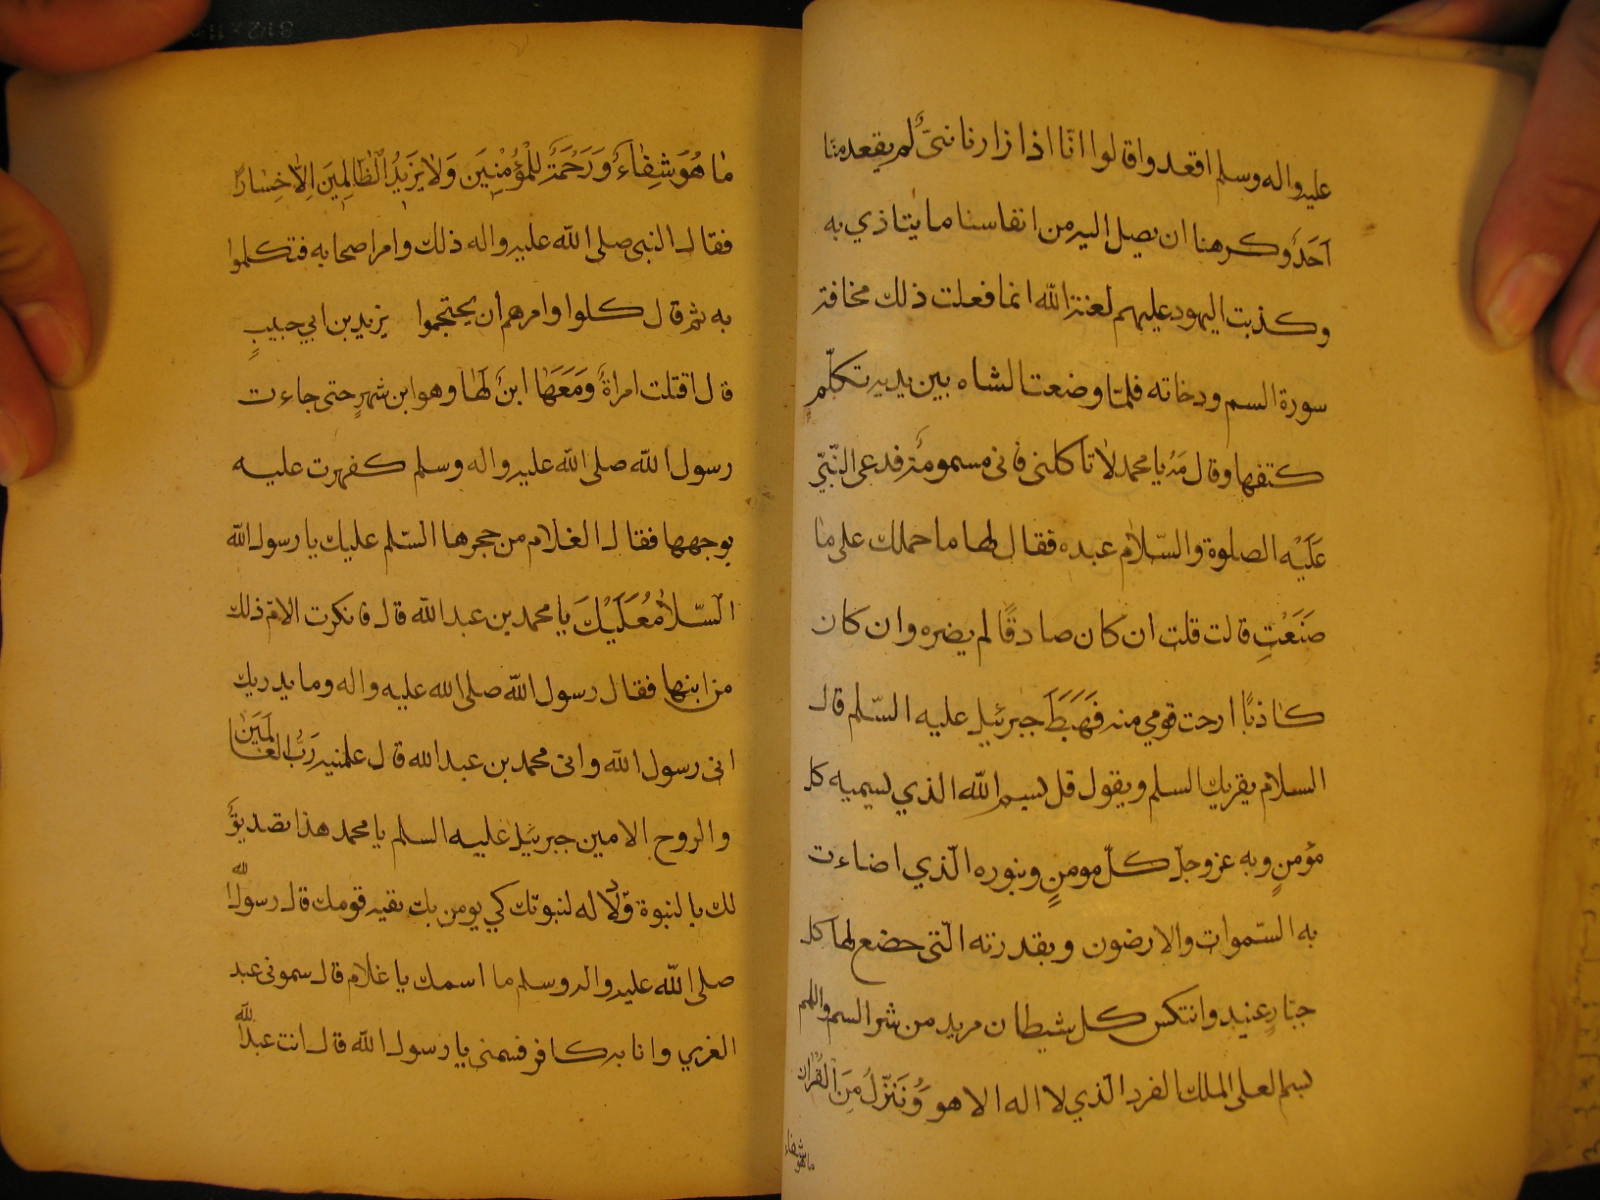 عليه واله وسلم اقعدوا قالوا انّا اذا زارنا نبىّ لم يقعد منا
اَحَدٌ وكرهنا ان يصل اليه من انفاسنا ما يتاذي به
وكذبت اليهود عليهم لعنة الله انما فعلت ذلك مخافة
سورة السم ودخاته فلمّا وضعت الشاه بين يديه تكلّم
كتفها وقال مَهْ يا محمد لا تاكلنى فانى مسمومة فدعى النّبىّ
عَلَيْه الصلوة والسّلام عبده فقال لها ما حملك على ما
صَنَعْتِ قالت قلت ان كان صادقًا لم يضره وان كان
كاذبًا ارحت قومي منه فَهَبَطَ جبرئيل عليه السّلم قال
السلام يقريك السلم ويقول قل بسم الله الذي يسميه كل
مؤمنٍ وبه عز وجلّ كلّ مومنٍ وبنوره الّذي اضاءت
به السّموات والارضون وبقدرته الّتى خضع لها كل
جبّارٍ عنيد وانتكس كل شيطان مريد من شر السم واللمم
بسم العلى الملك الفرد الّذي لا اله الا هو وَنُنَزّلُ مِنَ الْقُرْان
ما هو شفاء
مٰا هُوَ شِفٰاءٌ وَرَحْمَةٌ لِلْمُؤْمِنِينَ وَلاٰ يَزِيدُ الظّٰالِمِينَ اِلاّٰ خِسٰارًا
فقال النبى صلى الله عليه واله ذلك وامر اصحابه فتكلموا
به ثم قال كلوا وامرهم أن يحتجموا يزيد بن ابي حبيبٍ
قال اقتلت امراةٌ وَمَعَهٰا ابنٌ لَهٰا وهو ابن شهرٍ حتى جاءت
رسول الله صلى الله عليه واله وسلم كفهرت عليه
بوجهها فقال الغلام من حجرها السّلم عليك يا رسول الله
السّلاٰمُ عَلَيْكَ يا محمد بن عبد الله قال فانكرت الام ذلك
من ابنها فقال رسول الله صلى الله عليه واله وما يدريك
انى رسول الله وانى محمد بن عبد الله قال علمنيه رَبُّ الْعٰالَمَيِنَ
والروح الامين جبرئيل عليه السلم يا محمد هذا تصديقٌ
لك بالنبوة ودلاله لنبوتك كي يومن بك بقيه قومك قال رسول الله
صلى الله عليه واله وسلم ما اسمك يا غلام قال سمونى عبد
العزي وانا به كافر فسمنى يا رسول الله قال انت عبد الله